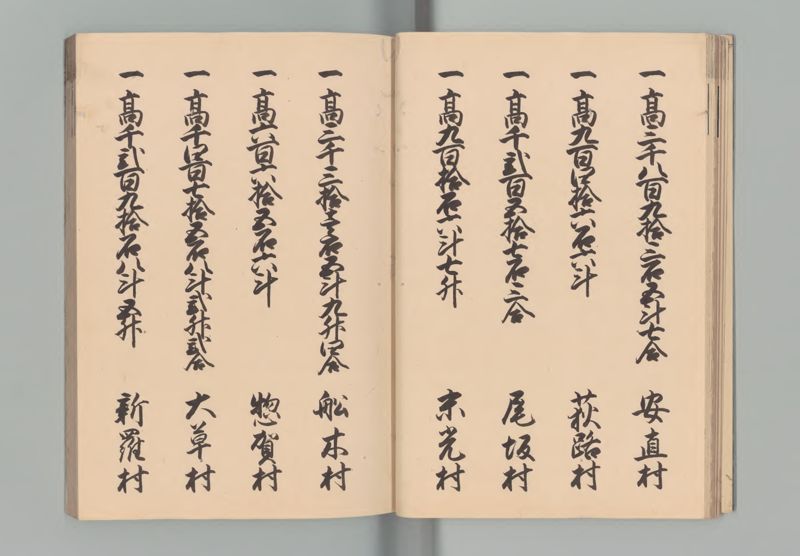 一 高三千八百九拾三石五斗七合 安直村
一 高九百四拾六石六斗 萩路村
一 高千弐百五拾七石三合 尾坂村
一 高九百拾石六斗七升 末光村
一 高三千三拾壱石五斗九升四合 舩木村
一 高六百六拾五石六斗 惣賀村
一 高千四百七拾五石八斗弐升弐合 大草村
一 高千弐百九拾石八斗五升 新羅村